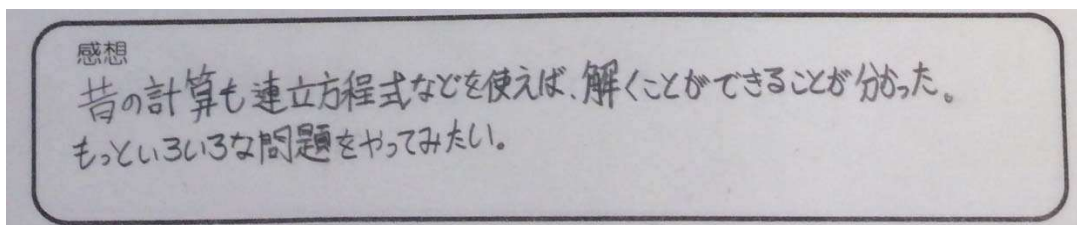 感想
昔の計算も連立方程式などを使えば、解くことができることが分かった。
もっといろいろな問題をやってみたい。